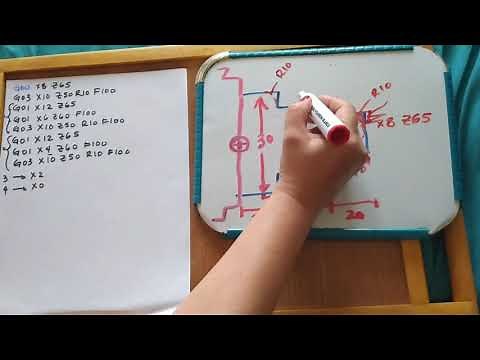 G00 X8 Z65
G03 X10 Z50 R10 F100
G01 X12 Z65
G01 X6 Z60 F100
G03 X10 Z50 R10 F100
G01 X12 Z65
G01 X4 Z60 F100
G03 X10 Z50 R10 F100
3 → X2
4 → X0
R10
R10
30
X8 Z65
20